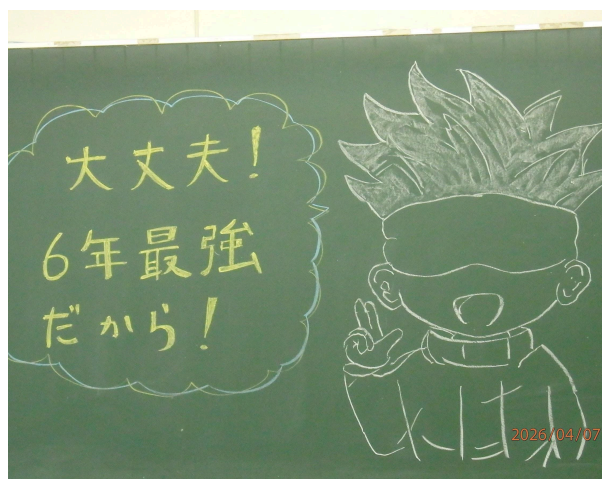 大丈夫!
6年最強
だから!
2026/04/07